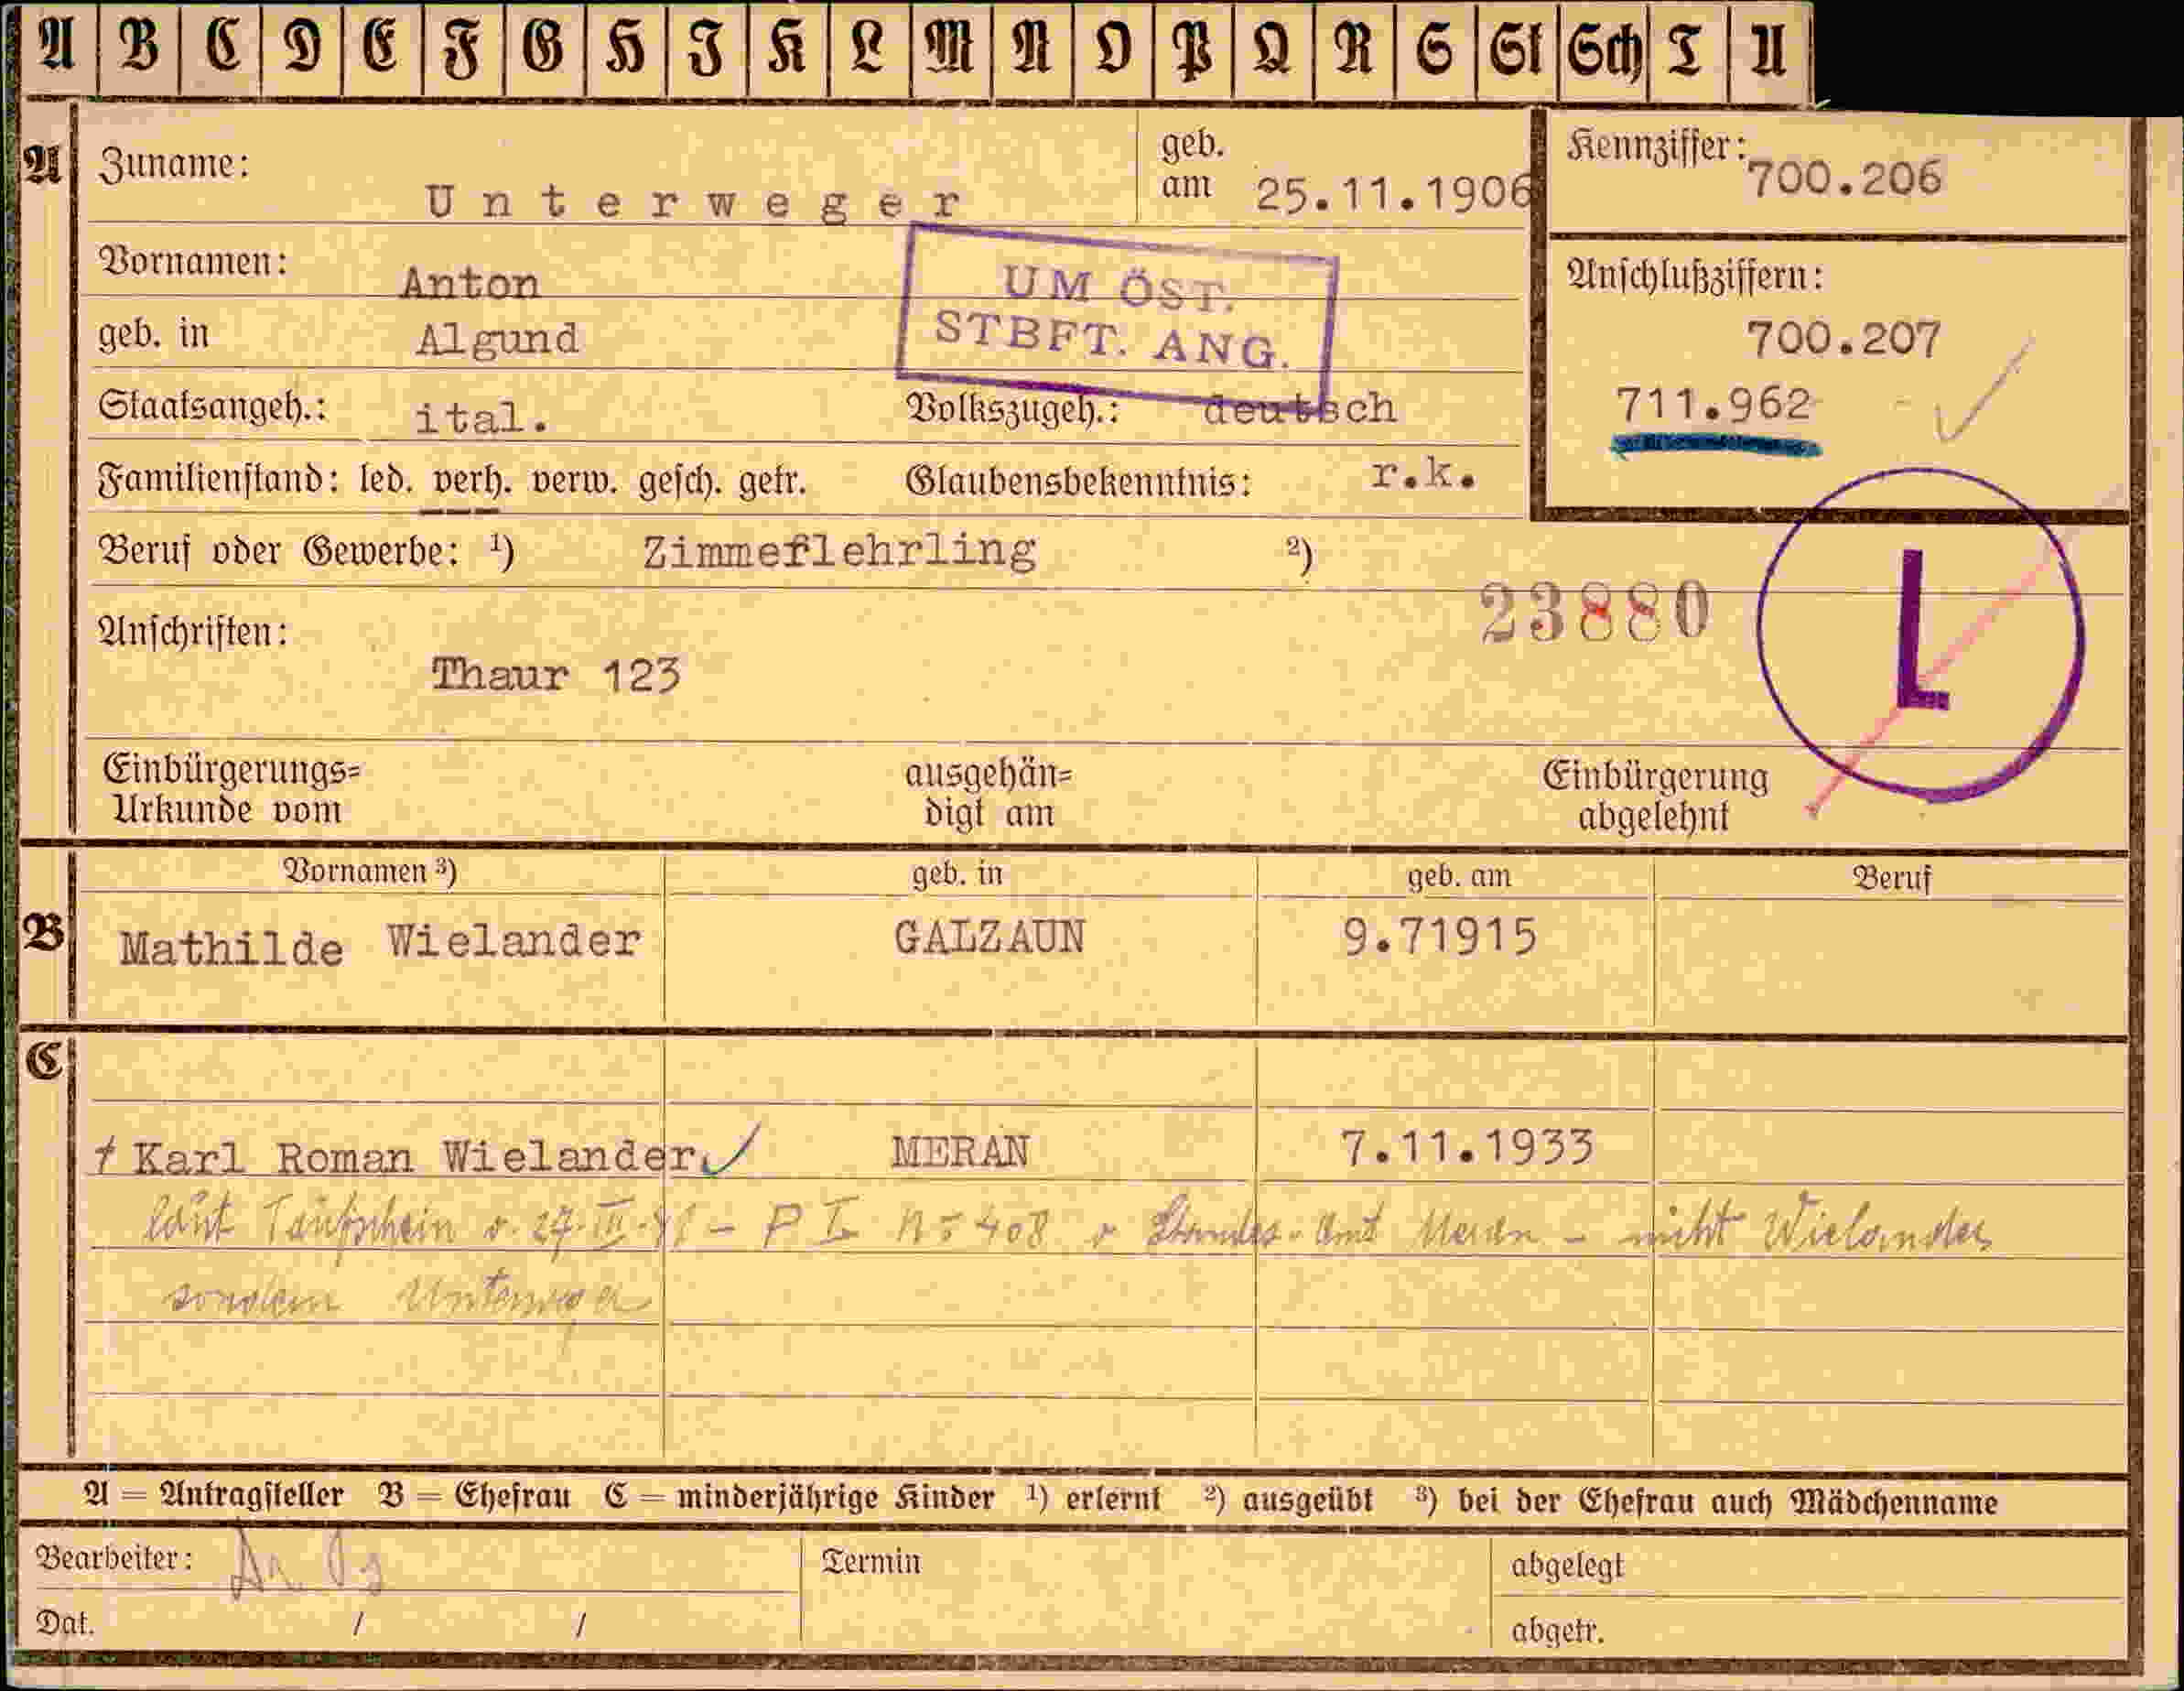 A B C D E F G H J K L M N O P Q R S St Sch T U
A Zuname: U n t e r w e g e r geb. am 25.11.1906
Kennziffer: 700.206
Vornamen: Anton
UM ÖST.
STBFT. ANG.
Anschlußziffern:
700.207
711.962
geb. in Algund
Staatsangeh.: ital. Volkszugeh.: deutsch
Familienstand: led. verh. verw. gesch. getr. Glaubensbekenntnis: r.k.
Beruf oder Gewerbe: ¹) Zimmerlehrling ²)
23880
L
Anschriften:
Thaur 123
Einbürgerungs=
Urkunde vom
ausgehän=
digt am
Einbürgerung
abgelehnt
Vornamen ³) geb. in geb. am Beruf
B Mathilde Wielander GALZAUN 9.71915
C
† Karl Roman Wielander MERAN 7.11.1933
laut Taufschein v. 27.III.41 - P I No 408 v Standes-Amt Meran - nicht Wielander
sondern Unterweger
A = Antragsteller B = Ehefrau C = minderjährige Kinder ¹) erlernt ²) ausgeübt ³) bei der Ehefrau auch Mädchenname
Bearbeiter: Termin abgelegt
Dat. / / abgetr.